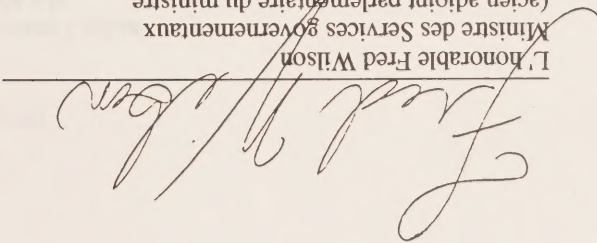 Fred Wilson
L'honorable Fred Wilson
Ministre des Services gouvernementaux
(acien adjoint parlementaire du ministre